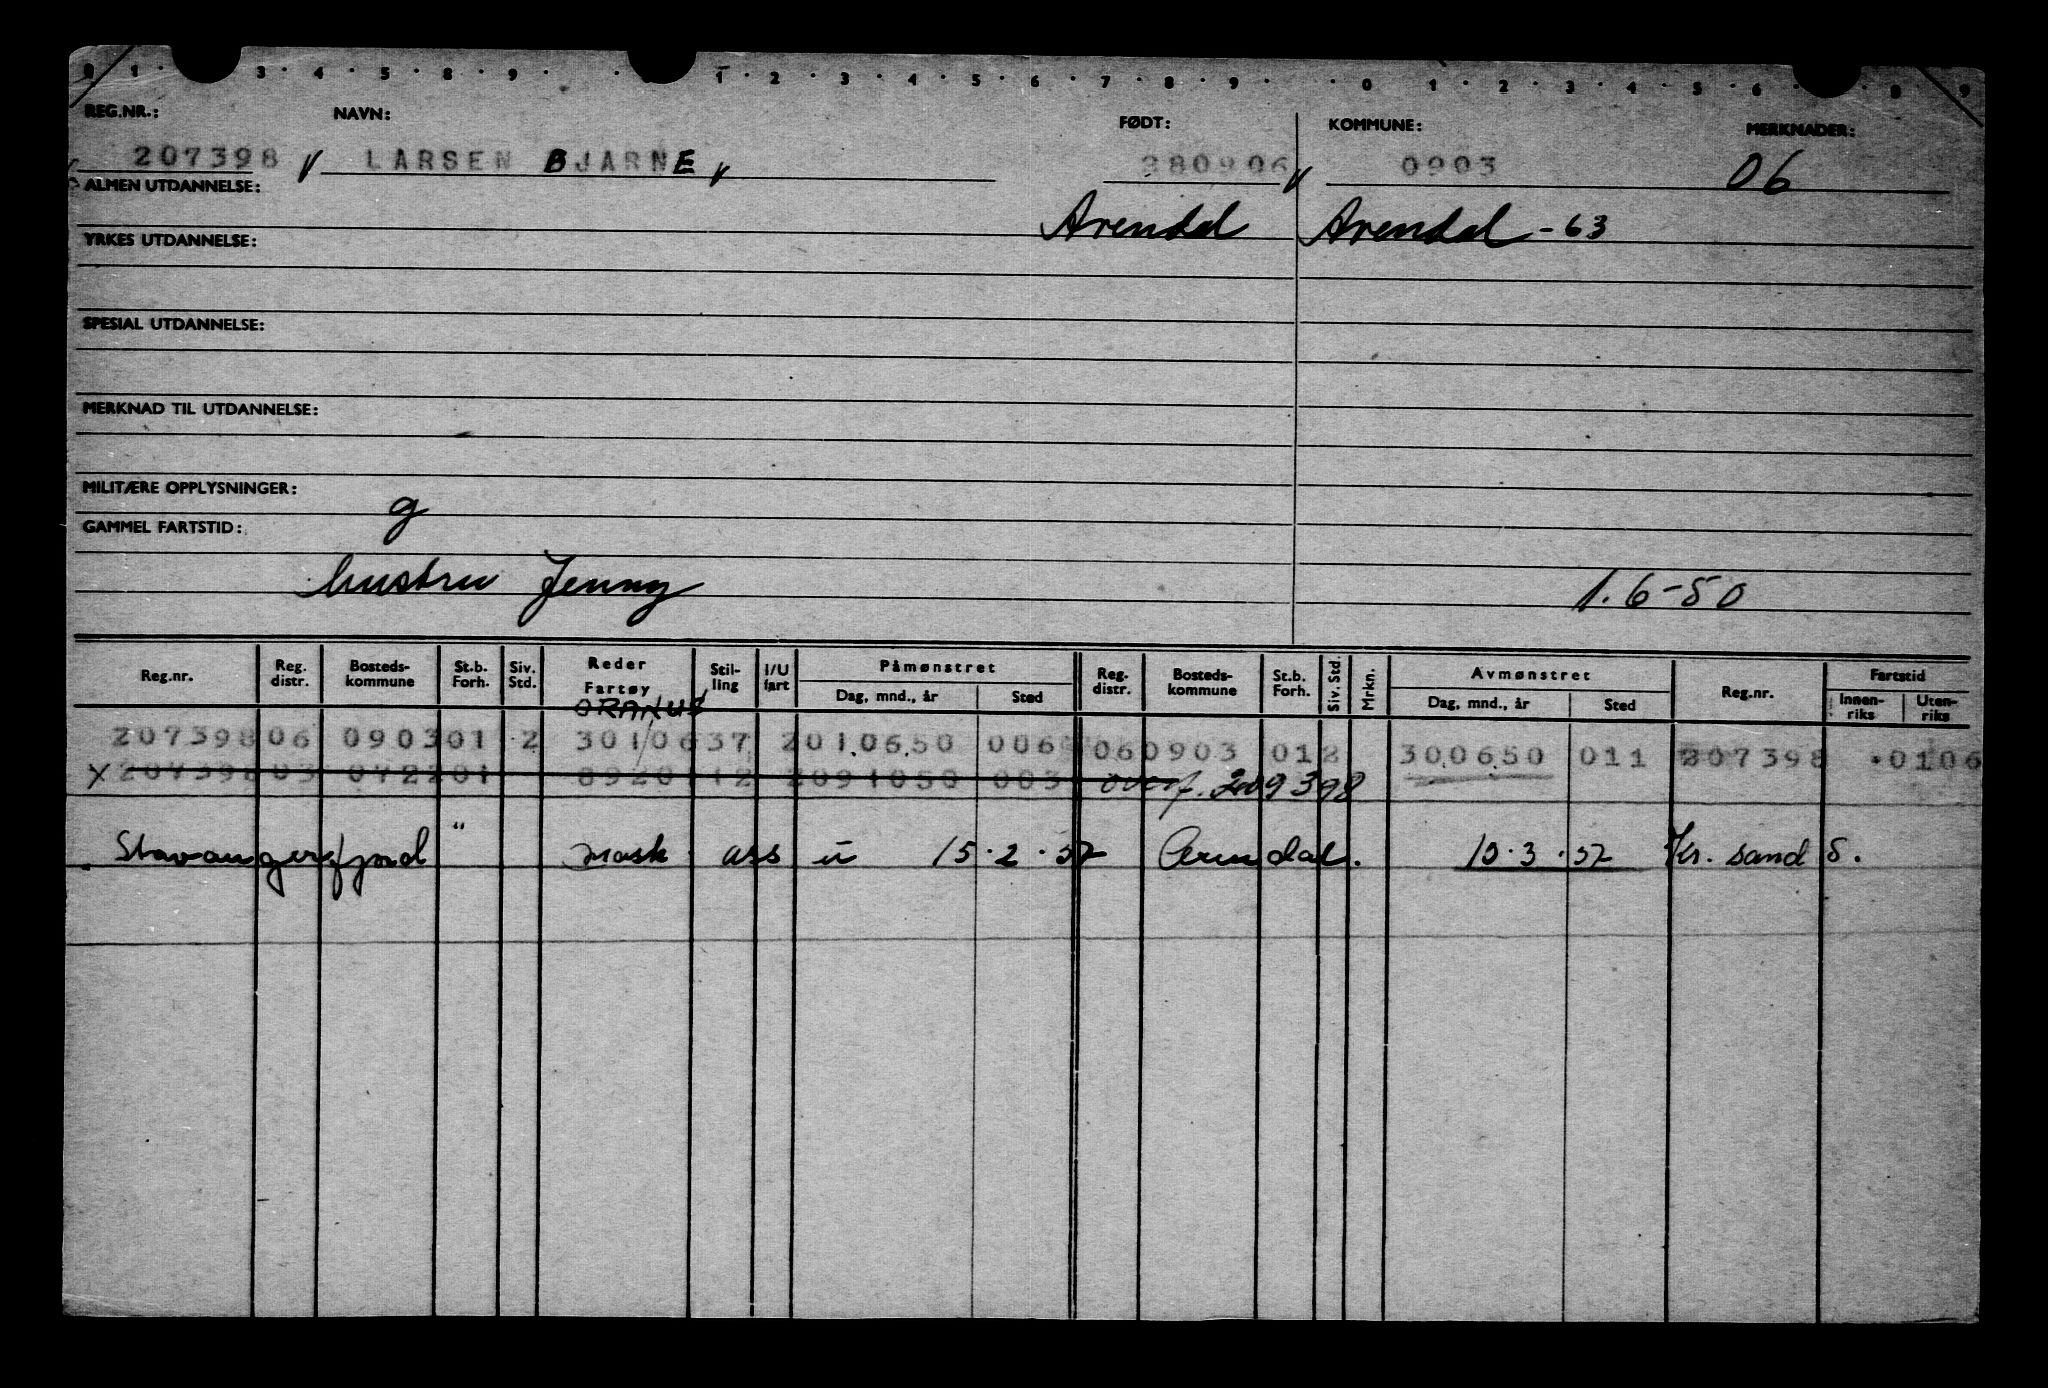 0 1 · 3 · 4 · 5 · 8 · 9 · · 1 · 2 · 3 · 4 · 5 · 6 · 7 · 8 · 9 · · 0 · 1 · 2 · 3 · 4 · 5 · 6 · 8 · 9
REG.NR.: NAVN: FØDT: KOMMUNE: MERKNADER:
207398 LARSEN BJARNE 280906 0903 06
ALMEN UTDANNELSE:
Arendal Arendal - 63
YRKES UTDANNELSE:
SPESIAL UTDANNELSE:
MERKNAD TIL UTDANNELSE:
MILITÆRE OPPLYSNINGER:
g
GAMMEL FARTSTID:
hustru Jenny 1.6-50
Reg.nr. Reg. distr. Bosteds-kommune St.b. Forh. Siv. Std. Reder Fartøy Stil-ling I/U fart Påmønstret Dag, mnd., år Sted Reg. distr. Bosteds-kommune St.b. Forh. Siv. Std. Mrkn. Avmønstret Dag, mnd., år Sted Reg.nr. Fartstid Innen-riks Uten-riks
207398 06 0903 01 2 301/06 37 2 010650 006 06 0903 01 2 300650 011 207398 0106
x 207398 03 0722 01 8920 12 2 091050 003 overf. 209398
Stavangerfjord " mask ass u 15.2.52 Arendal. 10.3.52 Kr. sand S.